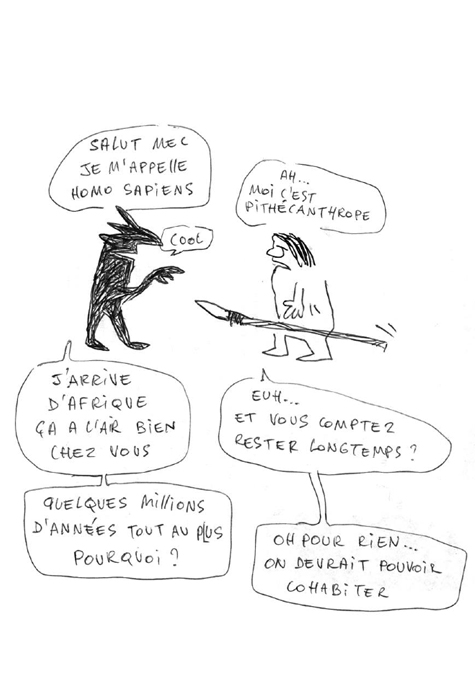 SALUT MEC
JE M'APPELLE
HOMO SAPIENS
AH...
MOI C'EST
PITHÉCANTHROPE
COOL
J'ARRIVE
D'AFRIQUE
ÇA A L'AIR BIEN
CHEZ VOUS
EUH...
ET VOUS COMPTEZ
RESTER LONGTEMPS ?
QUELQUES MILLIONS
D'ANNÉES TOUT AU PLUS
POURQUOI ?
OH POUR RIEN...
ON DEVRAIT POUVOIR
COHABITER